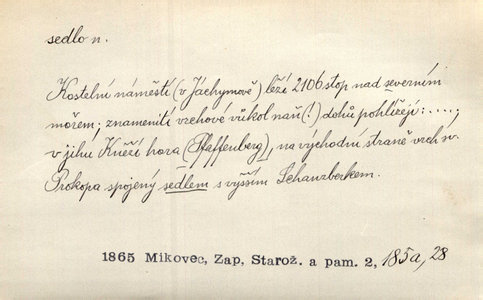 sedlo n.
Kostelní náměstí (v Jáchymově) leží 2106 stop nad severním
mořem; znamenití vrchové vůkol naň (!) dolů pohlížejí: ....;
v jihu Kněží hora (Pfaffenberg), na východní straně vrch sv.
Prokopa spojený sedlem s vyšším Schanzberkem.
1865 Mikovec, Zap, Starož. a pam. 2, 185a, 28